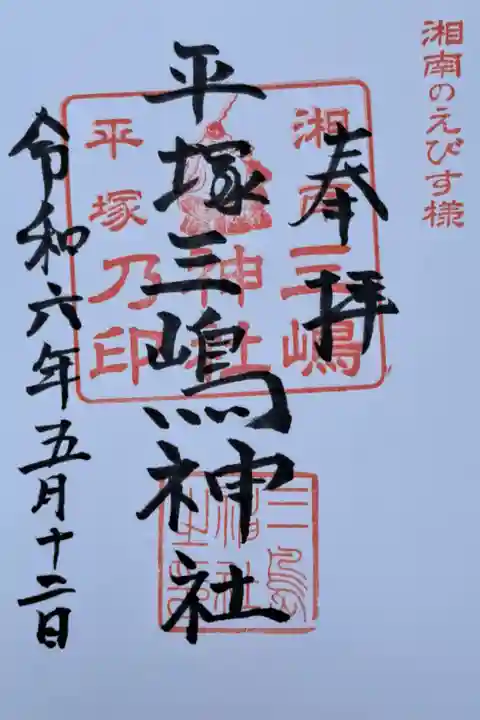 湘南のえびす様
奉拝
平塚三嶋神社
令和六年五月十二日
湘南三嶋
神社
平塚乃印
三島
神社
之印